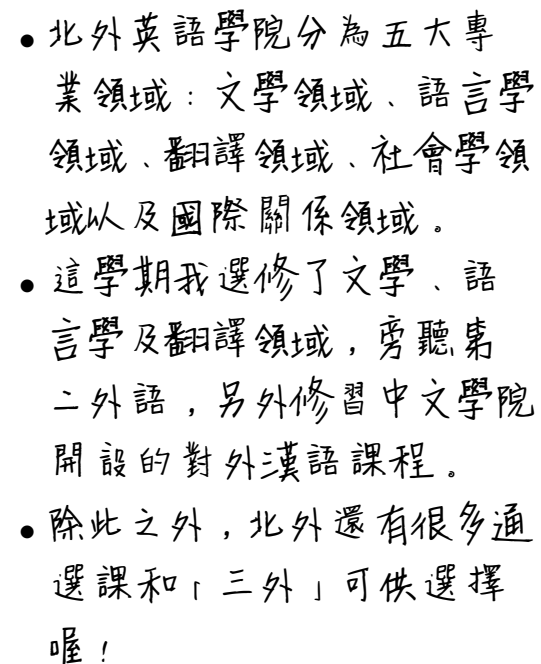 • 北外英語學院分為五大專
業領域：文學領域、語言學
領域、翻譯領域、社會學領
域以及國際關係領域。
• 這學期我選修了文學、語
言學及翻譯領域，旁聽第
二外語，另外修習中文學院
開設的對外漢語課程。
• 除此之外，北外還有很多通
選課和「三外」可供選擇
喔！